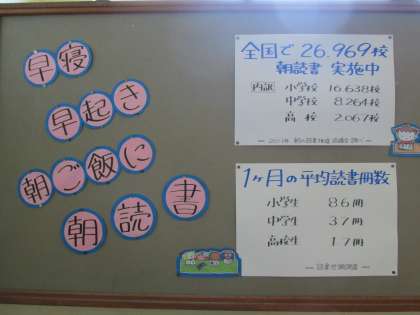 早寝
早起き
朝ご飯に
朝読書
全国で 26,969校
朝読書 実施中
内訳 小学校 16,638校
中学校 8,264校
高校 2,067校
1ヶ月の平均読書冊数
小学生 8.6冊
中学生 3.7冊
高校生 1.7冊